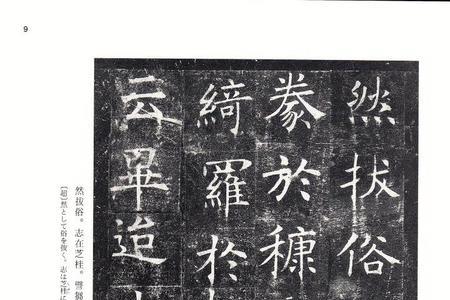 9
然拔俗
豢於穅
綺羅於
云畢迨
然拔俗。志在芝桂。譬
〔超〕然として俗を抜く。志は芝桂